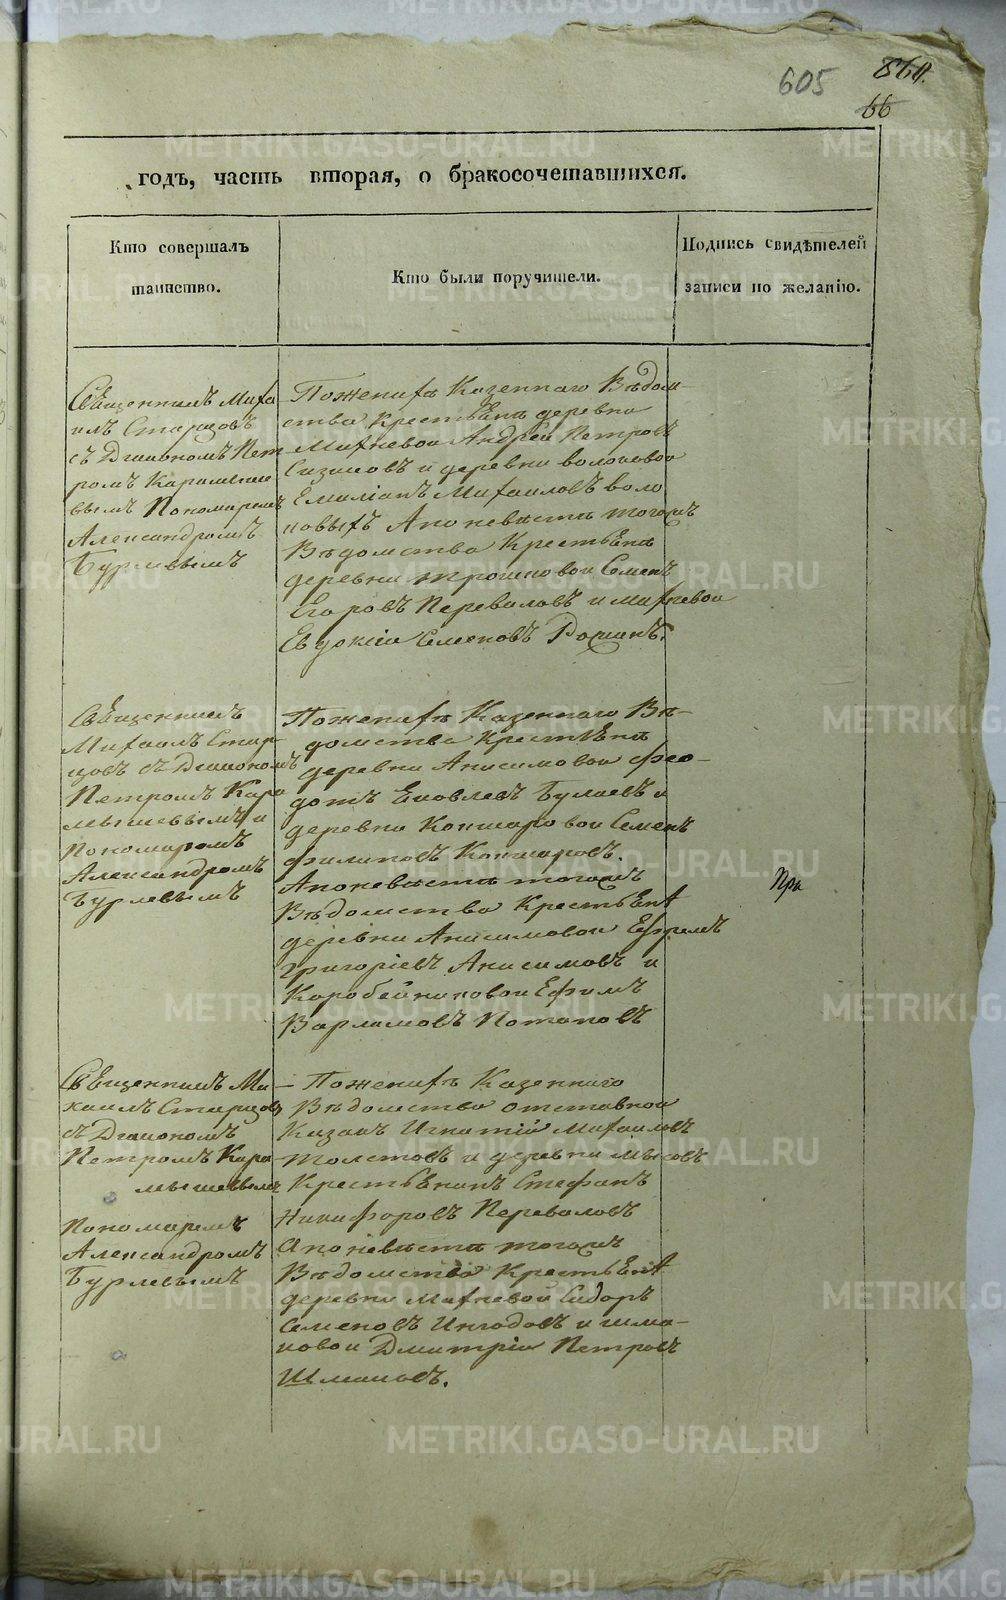 605
66
годъ, часть вторая, о бракосочетавшихся.
Кто совершалъ
таинство.
Кто были поручители.
Подпись свидѣтелей
записи по желанію.
Священникъ Миха
илъ Старцовъ
съ Дьякономъ Пет
ромъ Карамыше
вымъ Пономаремъ
Александромъ
Бурлевымъ
Поженихѣ Казеннаго Вѣдом
ства Крестьяне деревни
Махневой Андрей Петровъ
Сизиковъ и деревни
Емилианъ Михаиловъ воло
новыхъ Апоневѣстѣ тогожъ
Вѣдомства Крестьяне
деревни трошковой Семенъ
Егоровъ Переваловъ и Махневой
Семеновъ
Священникъ
Михаилъ Стар
цовъ съ Дьякономъ
Петромъ Кара
мышевымъ и
Пономаремъ
Александромъ
Бурлевымъ
Поженихѣ Казеннаго Вѣ-
домства Крестьяне
деревни Анисимовой Фео-
дотъ Яковлевъ Булаевъ и
деревни Кокшаровой Семенъ
Филиповъ Кокшаровъ.
Апоневѣстѣ тогожъ
Вѣдомства Крестьяне
деревни Анисимовой Ефремъ
Григоріевъ Анисимовъ и
Коробейниковой Ефимъ
Варламовъ Потаповъ
Пра
Священникъ Ми-
хаилъ Старцовъ
съ Дьякономъ
Петромъ Кара
мышевымъ
Пономаремъ
Александромъ
Бурлевымъ
Поженихѣ Казеннаго
Вѣдомства отставной
Казакъ Игнатій Михаиловъ
толстовъ и деревни Мысовъ
Крестьянинъ Стефанъ
Никифоровъ Переваловъ
Апоневѣстѣ тогожъ
Вѣдомства Крестьяне
деревни Махневой Сидоръ
Семеновъ и шма-
ковой Дмитрій Петровъ
Шмаковъ.
METRIKI.GASO-URAL.RU